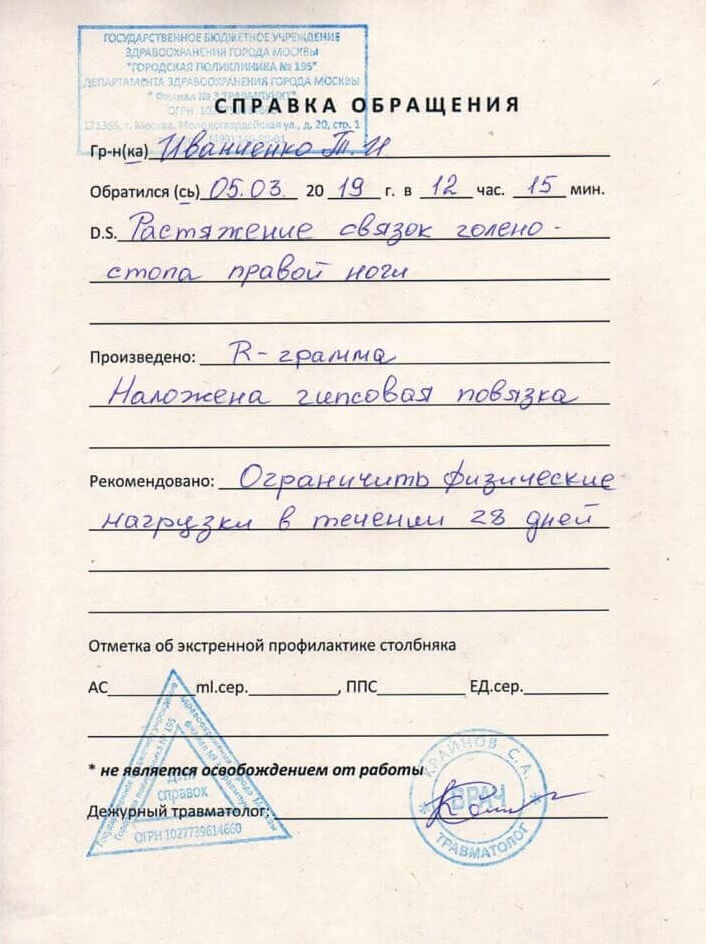 ГОСУДАРСТВЕННОЕ БЮДЖЕТНОЕ УЧРЕЖДЕНИЕ
ЗДРАВООХРАНЕНИЯ ГОРОДА МОСКВЫ
"ГОРОДСКАЯ ПОЛИКЛИНИКА № 195"
ДЕПАРТАМЕНТА ЗДРАВООХРАНЕНИЯ ГОРОДА МОСКВЫ
" Филиал № 3 ТРАВМПУНКТ"
ОГРН
121355, г. Москва, Молодогвардейская ул., д. 20, стр. 1
СПРАВКА ОБРАЩЕНИЯ
Гр-н(ка) Иванченко Т. И
Обратился (сь) 05.03. 20 19 г. в 12 час. 15 мин.
D.S. Растяжение связок голено-
стопа правой ноги
Произведено: R-грамма
Наложена гипсовая повязка
Рекомендовано: Ограничить физические
нагрузки в течении 28 дней
Отметка об экстренной профилактике столбняка
АС ml.сер. , ППС ЕД.сер.
* не является освобождением от работы
Дежурный травматолог:
Государственное бюджетное учреждение здравоохранения города Москвы
Городская поликлиника № 195 филиал № 3
Для
справок
ОГРН 1027739614660
КРАЙНОВ С. А.
ВРАЧ
ТРАВМАТОЛОГ